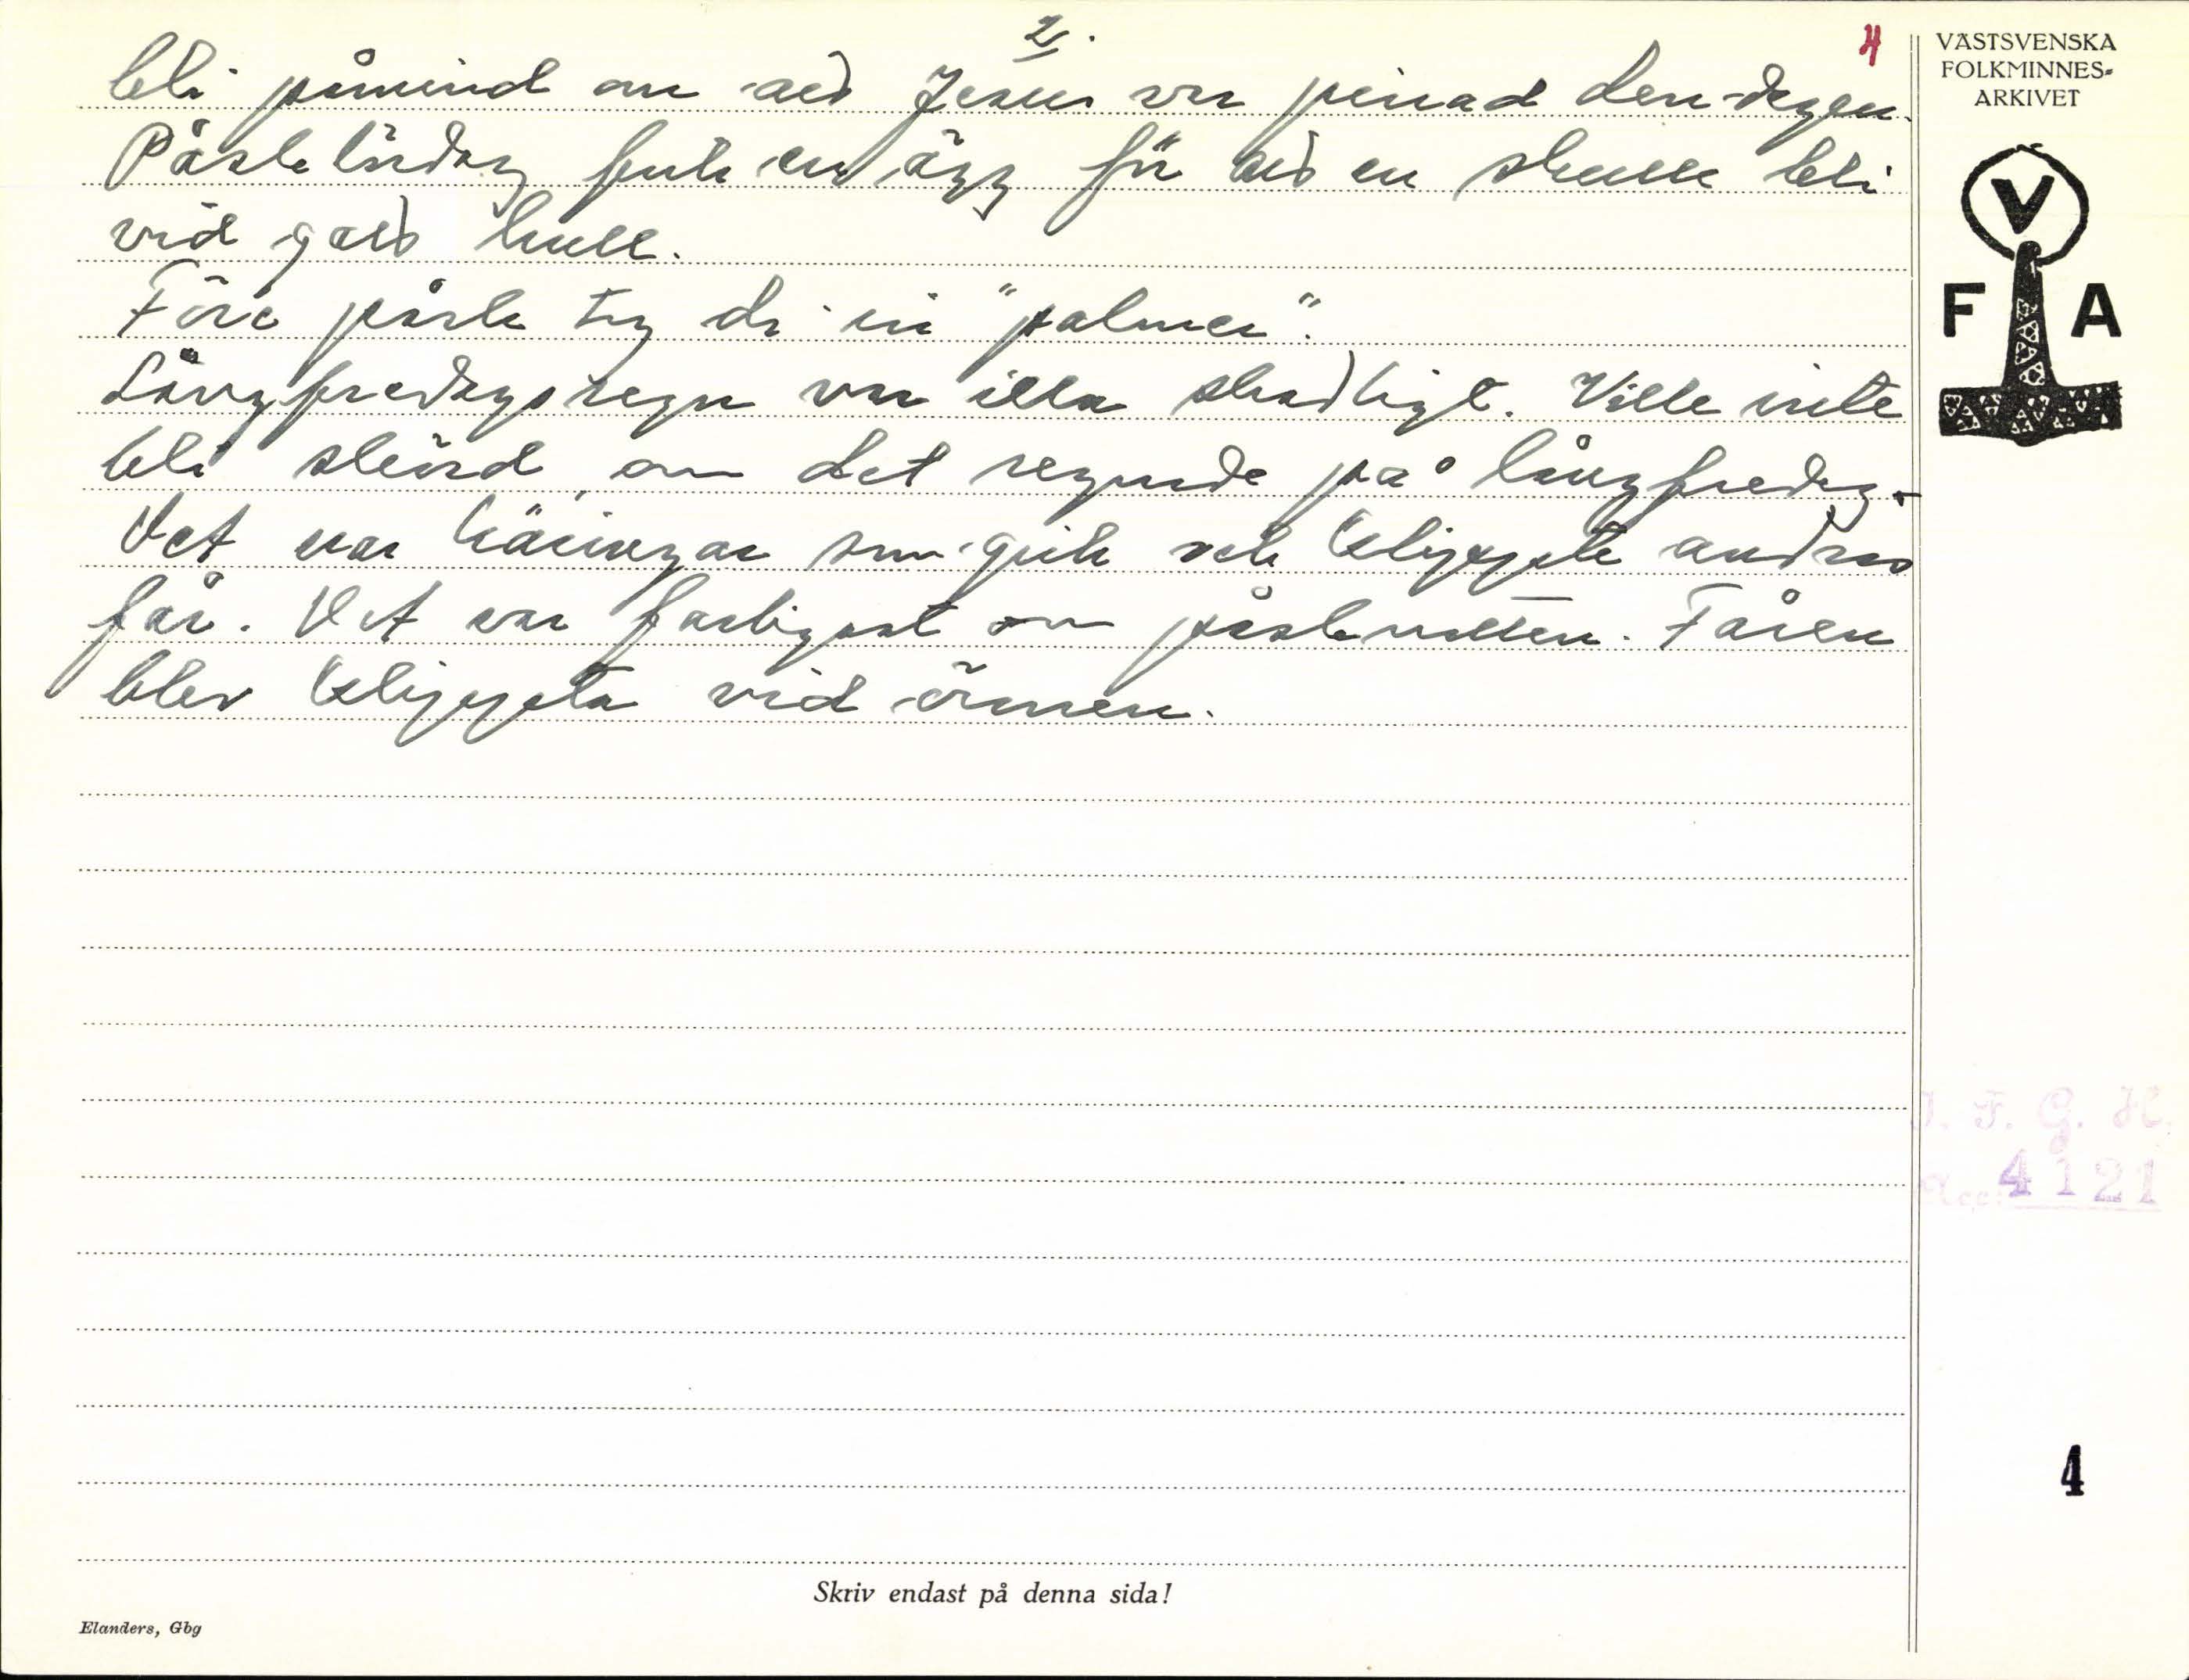 2.
4
bli påmind om att Jesus var pinad den dagen.
Påskelördag fick en ägg för att en skulle bli
vid gott hull.
Före påsk tog di in "palmer".
Långfredagsregn var illa skadligt. Ville inte
bli skörd, om det regnade på långfredag.
Det var käringar som gick och klippte andras
får. Det var farligast om påsknatten. Fåren
blev klippta vid öronen.
VÄSTSVENSKA
FOLKMINNES-
ARKIVET
V
F A
I. F. G. H.
Acc. 4121
4
Skriv endast på denna sida!
Elanders, Gbg